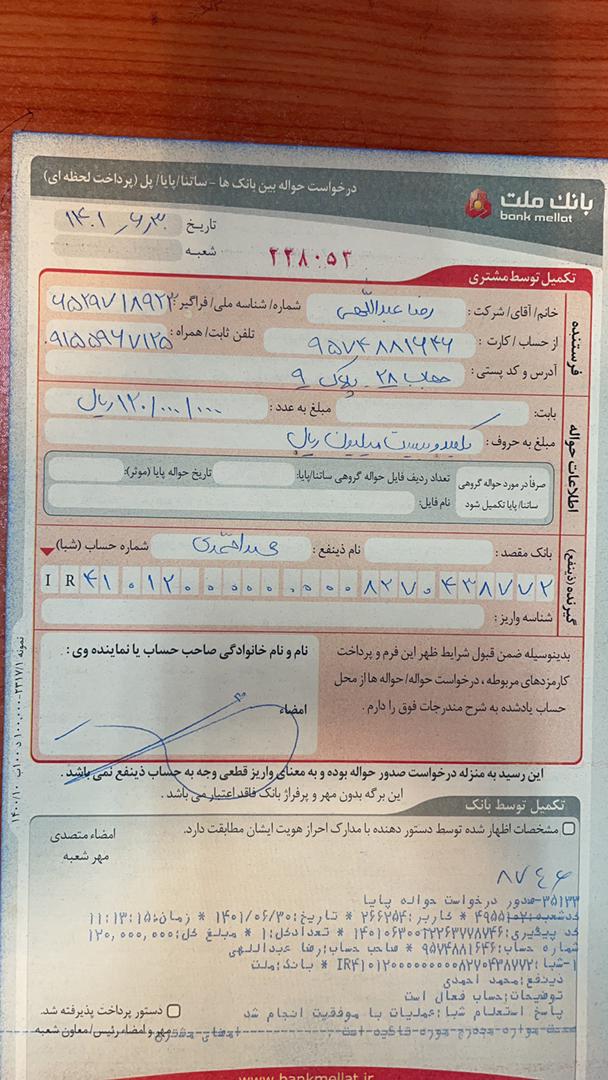 بانک ملت
bank mellat
درخواست حواله بین بانک ها - ساتنا/پایا/ پل (پرداخت لحظه ای)
تاریخ ۱۴۰۱٫۶٫۳۰
شعبه :
۲۲۸۰۵۳
تکمیل توسط مشتری
فرستنده
خانم/ آقای/ شرکت : رضا عبداللهی شماره/ شناسه ملی/ فراگیر:
از حساب / کارت : ۹۵۷۴۸۸۱۶۴۶ تلفن ثابت/ همراه : ۹۱۵۵۹۶۷۱۲۵۰
آدرس و کد پستی : ۲۸ پلاک ۹
اطلاعات حواله
بابت: مبلغ به عدد : ۱۲۰/۰۰۰/۰۰۰ ریال
مبلغ به حروف : یکصد و بیست میلیون ریال
صرفاً در مورد حواله گروهی ساتنا/ پایا تکمیل شود
تعداد ردیف فایل حواله گروهی ساتنا/پایا: تاریخ حواله پایا (موثر):
نام فایل:
گیرنده (ذینفع)
بانک مقصد : نام ذینفع : محمد احمدی شماره حساب (شبا)
IR ۴۱۰۱۲۰۰۰۰۰۰۰۰۰۰۸۲۷۰۴۳۸۷۷۲
شناسه واریز :
بدینوسیله ضمن قبول شرایط ظهر این فرم و پرداخت
کارمزدهای مربوطه ، درخواست حواله/ حواله ها از محل
حساب یادشده به شرح مندرجات فوق را دارم .
نام و نام خانوادگی صاحب حساب یا نماینده وی :
امضاء
این رسید به منزله درخواست صدور حواله بوده و به معنای واریز قطعی وجه به حساب ذینفع نمی باشد .
این برگه بدون مهر و پرفراژ بانک فاقد اعتبار می باشد .
تکمیل توسط بانک
مشخصات اظهار شده توسط دستور دهنده با مدارک احراز هویت ایشان مطابقت دارد.
امضاء متصدی
مهر شعبه
۸۷۴۶
۳۵۱۳۳-صدور درخواست حواله پایا
کاربر:۲۶۶۲۵۴ * تاریخ:۱۴۰۱/۰۶/۳۰ * زمان:۱۱:۱۳:۱۵
کد پیگیری:۱۴۰۱۰۶۳۰۰۲۲۶۳۷۷۸۷۴۶ * تعدادکل:۱ * مبلغ کل:۱۲۰,۰۰۰,۰۰۰
شماره حساب:۹۵۷۴۸۸۱۶۴۶ * صاحب حساب:رضا عبداللهی
۱-شبا:IR۴۱۰۱۲۰۰۰۰۰۰۰۰۰۰۸۲۷۰۴۳۸۷۷۲ * بانک:ملت
ذینفع:محمد احمدی
توضیحات:حساب فعال است
پاسخ استعلام شبا:عملیات با موفقیت انجام شد
دستور پرداخت پذیرفته شد.
مهر و امضاء رئیس/ معاون شعبه
www.bankmellat.ir